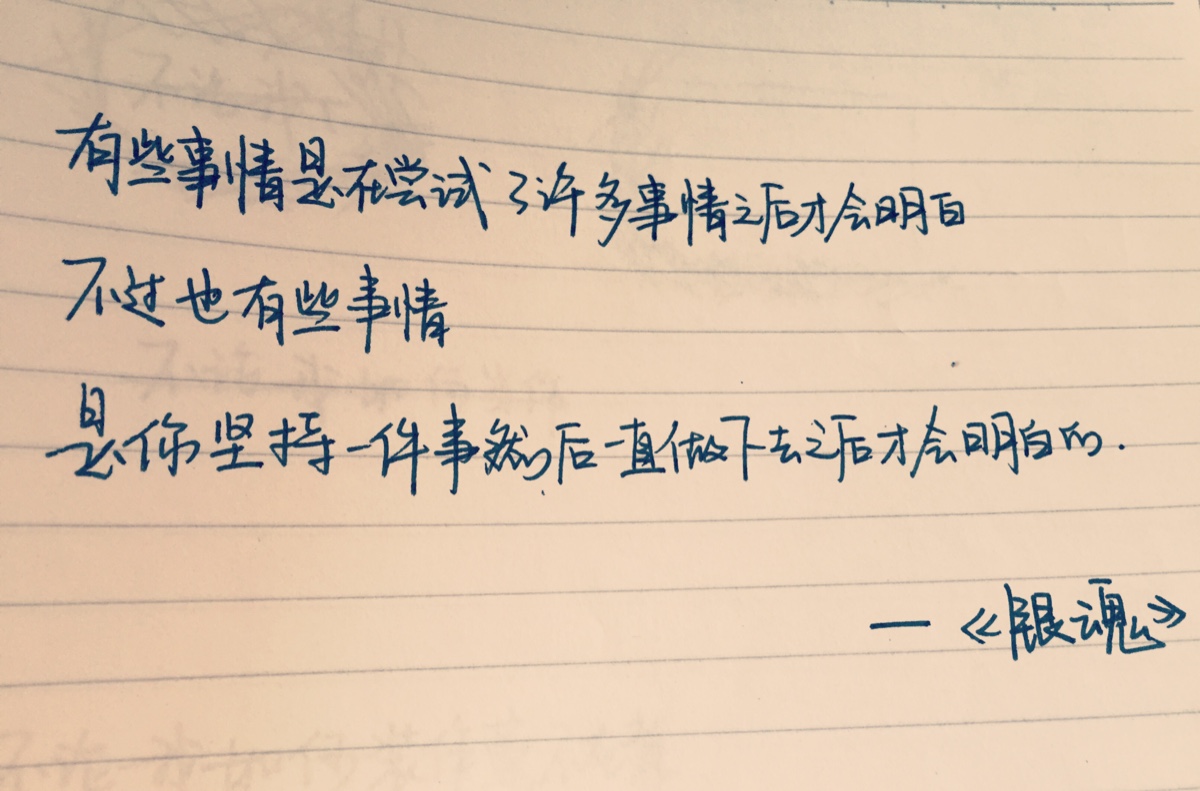 有些事情是在尝试了许多事情之后才会明白
不过也有些事情
是你坚持一件事然后一直做下去之后才会明白的.
—《银魂》